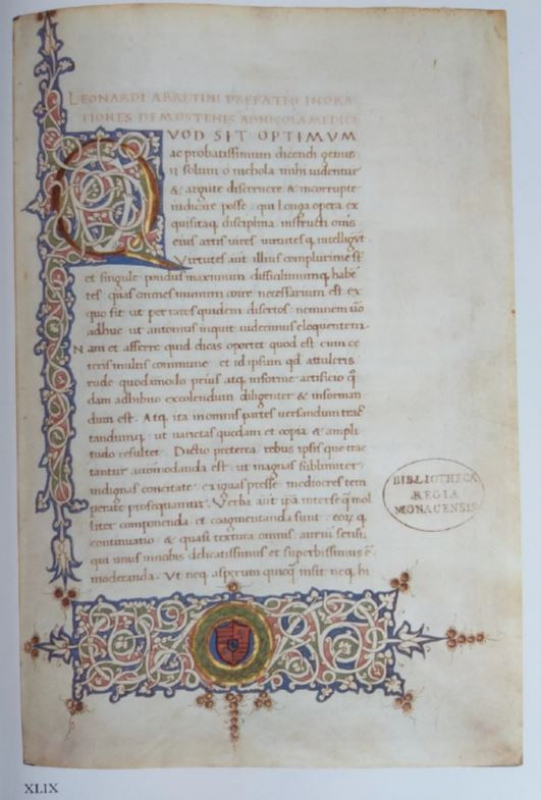 LEONARDI ARRETINI PREFATIO IN ORA
TIONES DEMOSTENIS AD NICOLA MEDICI
QVOD SIT OPTIMVM
ac probatissimum dicendi genus
ii solum o nichola mihi uidentur
& argute discernere & incorrupte
iudicare posse qui longa opera ex
quisitaq. disciplina instructi
eius artis uires uirtutesq. intelligũt
Virtutes aũt illius complurime sũt
et singule pondus maximum difficultatemq. habẽ
tes quas omnes in unum coire necessarium est ex
quo fit ut per raros quidem disertos neminem uõ
adhuc ut antonius inquit uiderimus eloquentem
Nam et afferre quid dicas oportet quod est cum ce
teris multis commune et id ipsum qđ attuleris
rude quodãmodo prius atq. informe artificio q̃
dam adhibito excolendum diligenter & informan
dum est. Atq. ita in omnis partes uersandum trac
tandumq. ut uarietas quedam et copia & ampli
tudo resultet. Dictio preterea rebus ipsis que trac
tantur accomodanda est ut magnas sublimiter
indignas concitate exiguas presse mediocres tem
perate prosequamur. Verba aũt ipa inter se q̃ mol
liter componenda et coagmentanda sunt eorq. q
continuatio & quasi textura omnis aurium sensu,
qui unus in nobis delicatissimus et superbissimus ẽ
moderanda. Vt neq. asperum quicq̃ insit neq. hi
BIBLIOTHECA
REGIA
MONACENSIS
XLIX